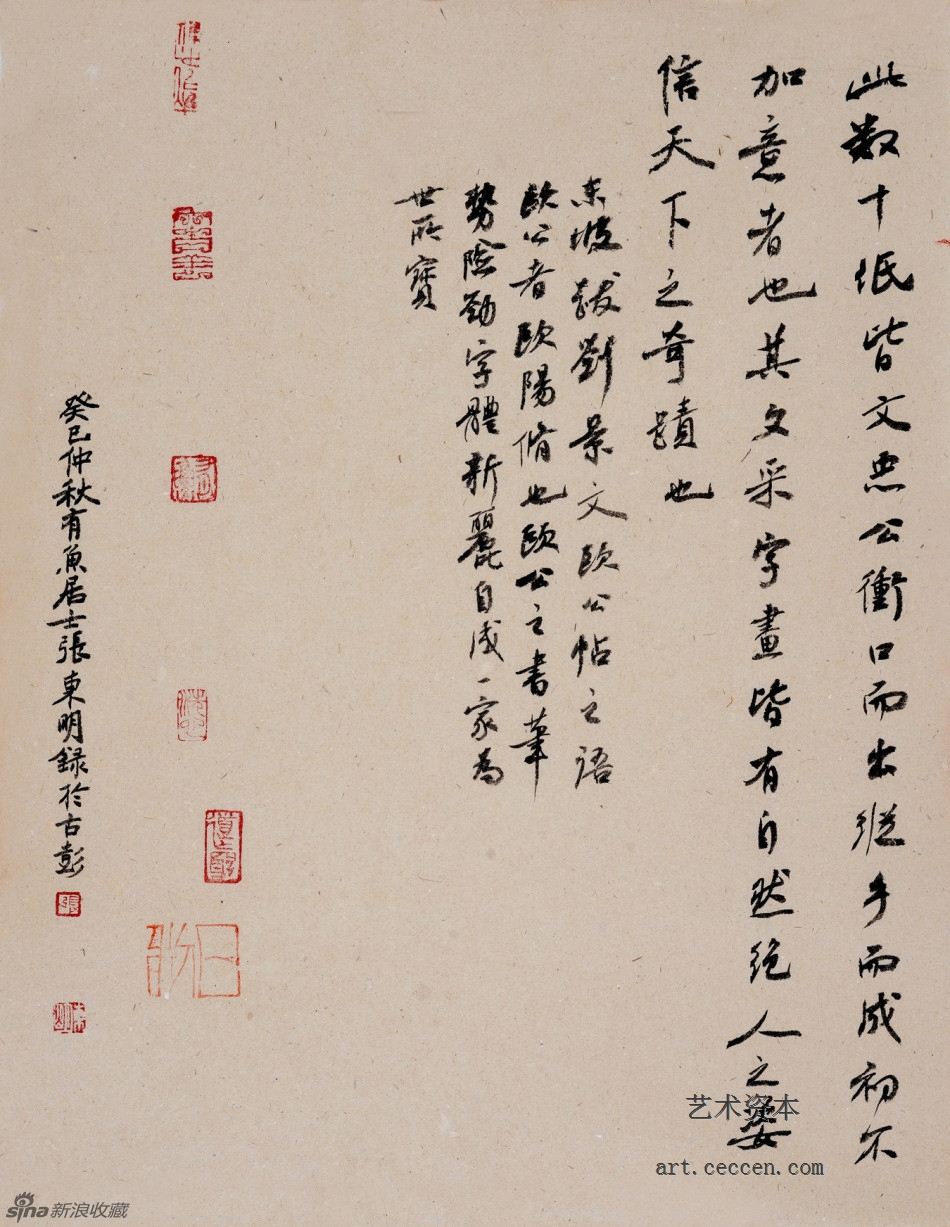 此数十纸皆文忠公衝口而出縱手而成初不
加意者也其文采字畫皆有自然绝人之姿
信天下之奇蹟也
東坡跋劉景文欧公帖之語
歐公者歐陽脩也歐公之書筆
勢險勁字體新麗自成一家為
世所寶
癸巳仲秋有魚居士張東明録於古彭
張
艺术资本
art.ceccen.com
sina新浪收藏